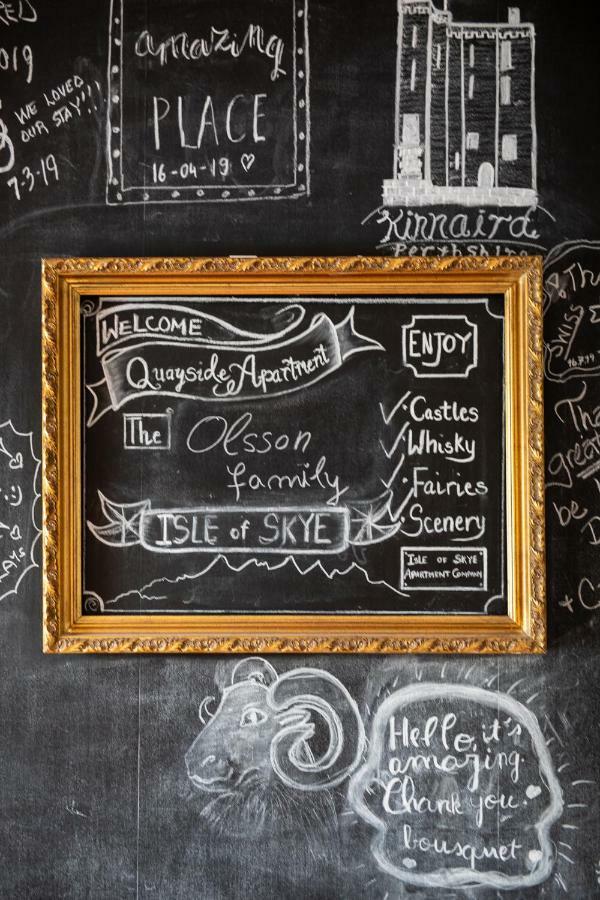 amazing
PLACE
16-04-19
019
WE LOVED
OUR STAY!!!
7-3-19
Kinnaird
Perthshire
WELCOME
Quayside Apartment
The Olsson
family
ISLE of SKYE
ENJOY
Castles
Whisky
Fairies
Scenery
ISLE OF SKYE
APARTMENT COMPANY
great
be
Hello, it's
amazing.
Thank you.
bousquet